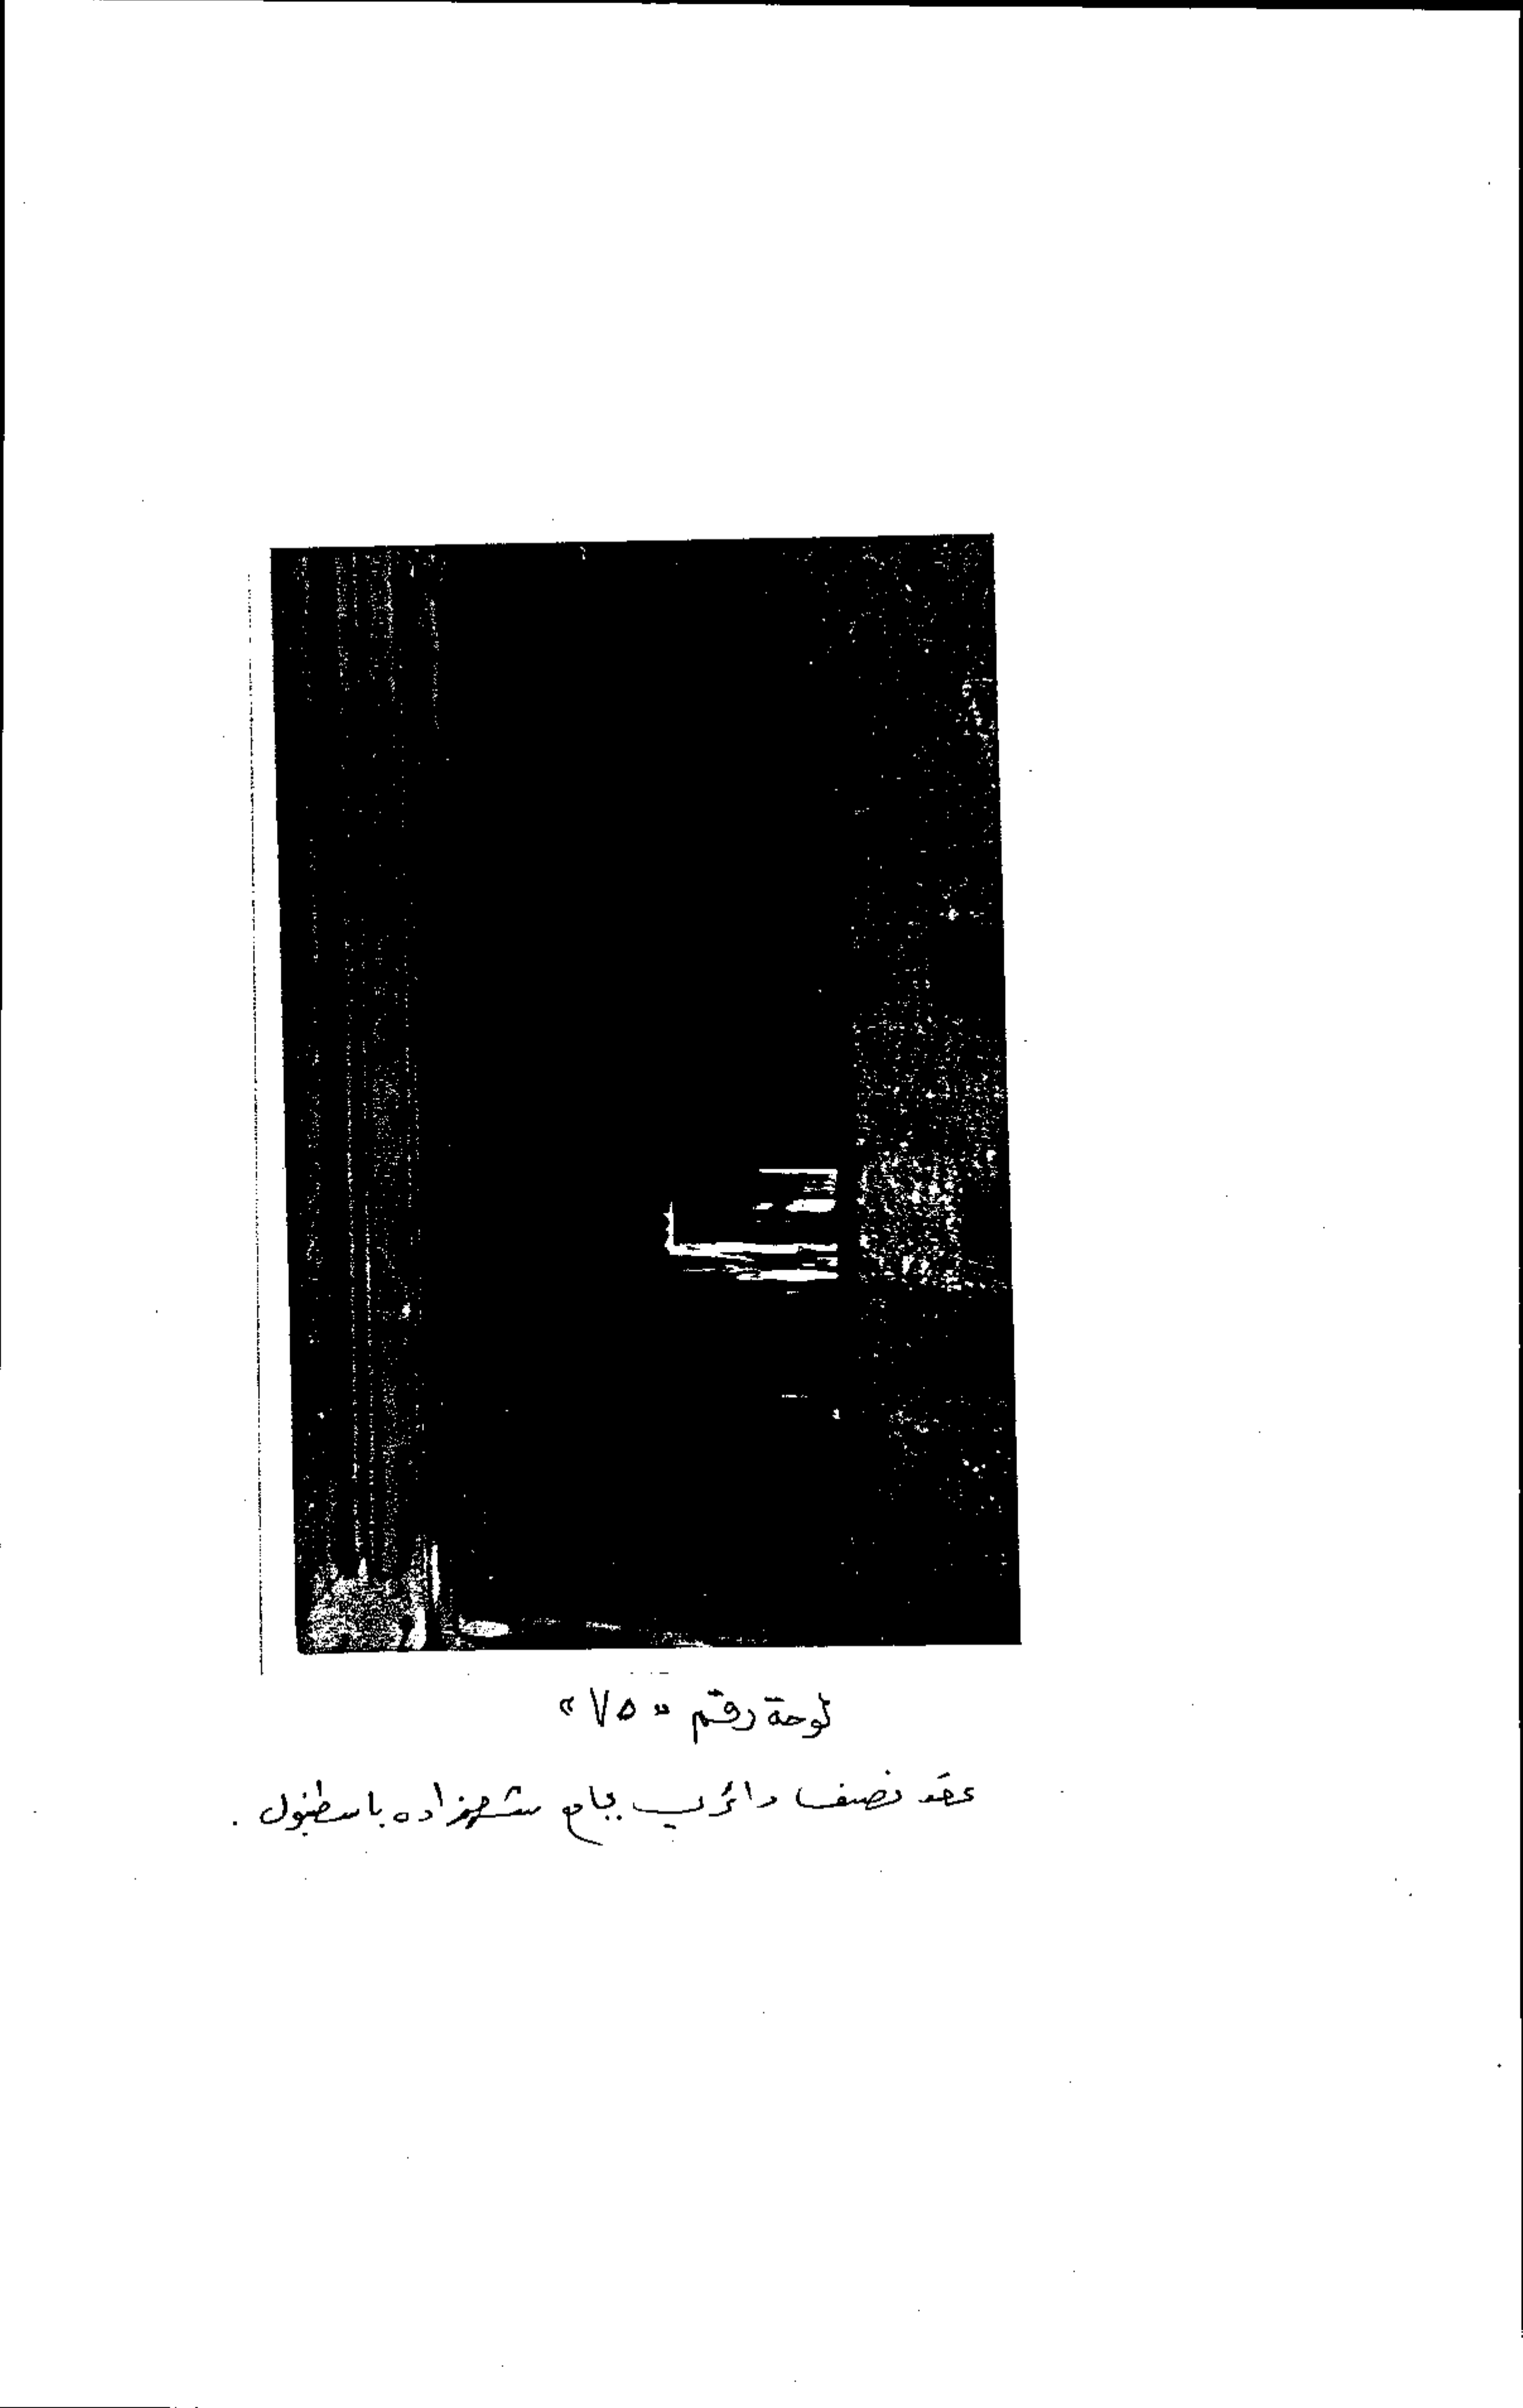 لوحة رقم « ٧٥ »
عقد نصف دائرى بجامع شهزاده باسطنبول .